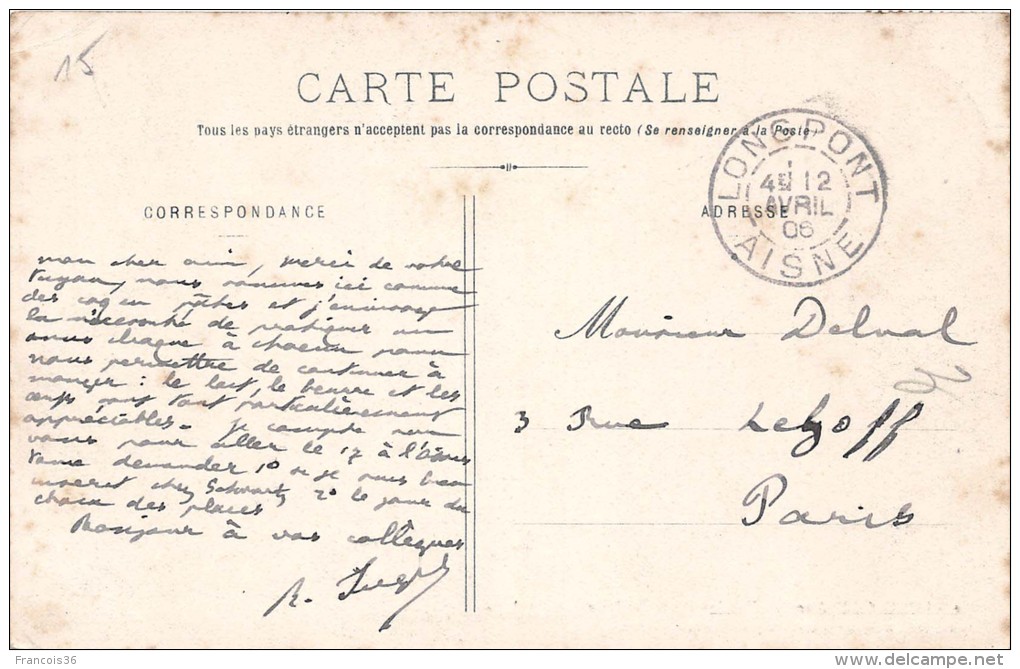 15
CARTE POSTALE
Tous les pays étrangers n'acceptent pas la correspondance au recto (Se renseigner à la Poste)
LONGPONT
4E 12
AVRIL
06
AISNE
CORRESPONDANCE
ADRESSE
mon cher ami, merci de votre
tuyau, nous sommes ici comme
des coq en pâtes et j'envisage
la nécessité de pratiquer un
anus chaque à chacun pour
nous permettre de continuer à
manger : le lait, le beurre et les
œufs sont tout particulièrement
appréciables. Je compte sur
vous pour aller le 17 à l'
demander 1º si je suis bien
inscrit chez Schwartz 2º le jour du
choix des places
Bonjour à vos collègues
R.
Monsieur Delval
3 Rue
Paris
Francois36
www.delcampe.net